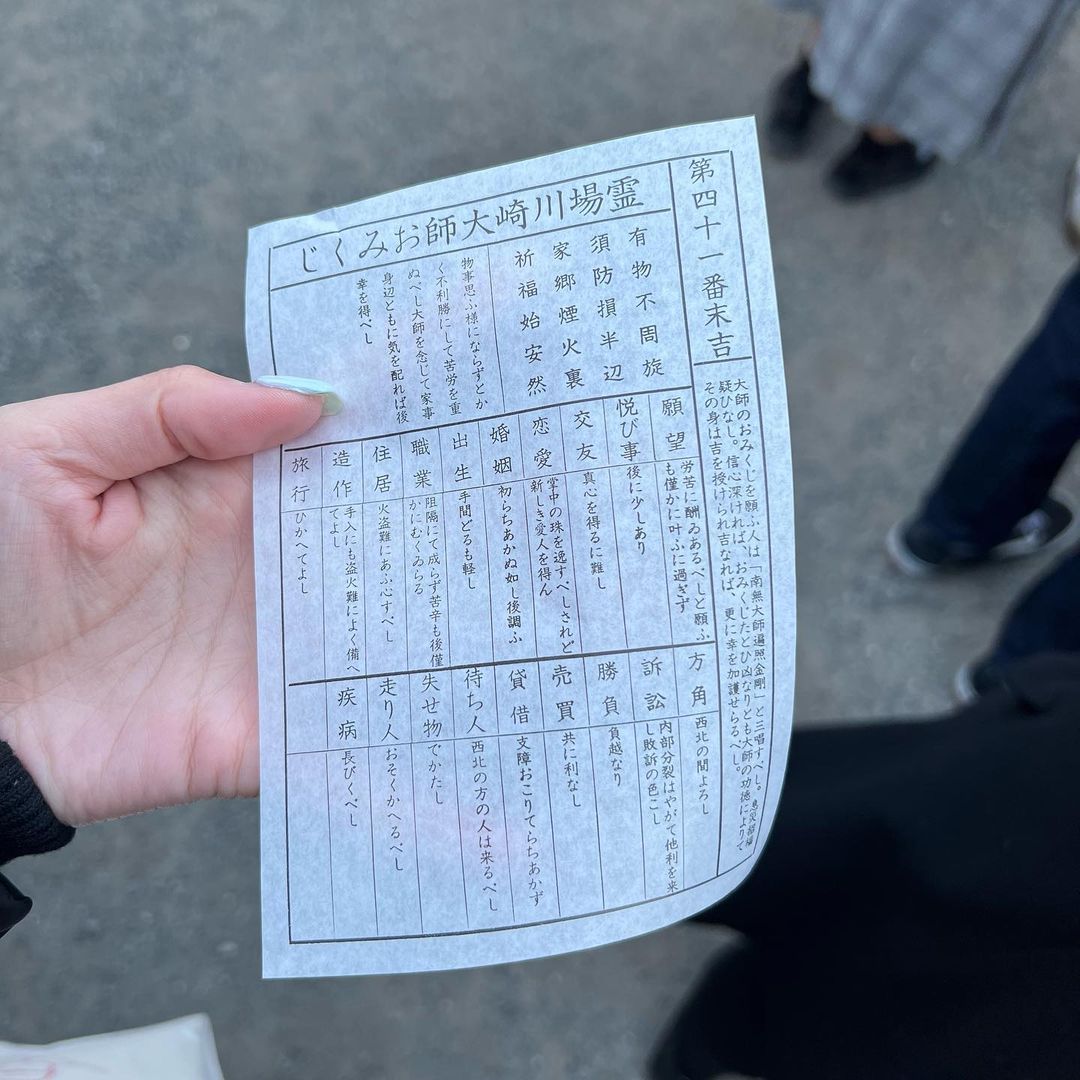 第四十一番末吉
大師のおみくじを願ふ人は「南無大師遍照金剛」と三唱すべし。息災招福
疑ひなし。信心深ければ、おみくじたとひ凶なりとも大師の功徳によりて
その身は吉を授けられ吉なれば、更に幸を加護せらるべし。
じくみお師大崎川場霊
有物不周旋
須防損半辺
家郷煙火裏
祈福始安然
物事思ふ様にならずとか
く不利勝にして苦労を重
ぬべし大師を念じて家事
身辺ともに気を配れば後
幸を得べし
願望
労苦に酬ゐあるべしと願ふ
も僅かに叶ふに過ぎず
悦び事
後に少しあり
交友
真心を得るに難し
恋愛
掌中の珠を逸すべしされど
新しき愛人を得ん
婚姻
初らちあかぬ如し後調ふ
出生
手間どるも軽し
職業
阻隔にて成らず苦辛も後僅
かにむくゐらる
住居
火盗難にあふ心すべし
造作
手入にも盗火難によく備へ
てよし
旅行
ひかへてよし
方角
西北の間よろし
訴訟
内部分裂はやがて他利を来
し敗訴の色こし
勝負
負越なり
売買
共に利なし
貸借
支障おこりてらちあかず
待ち人
西北の方の人は来るべし
失せ物
でかたし
走り人
おそくかへるべし
疾病
長びくべし